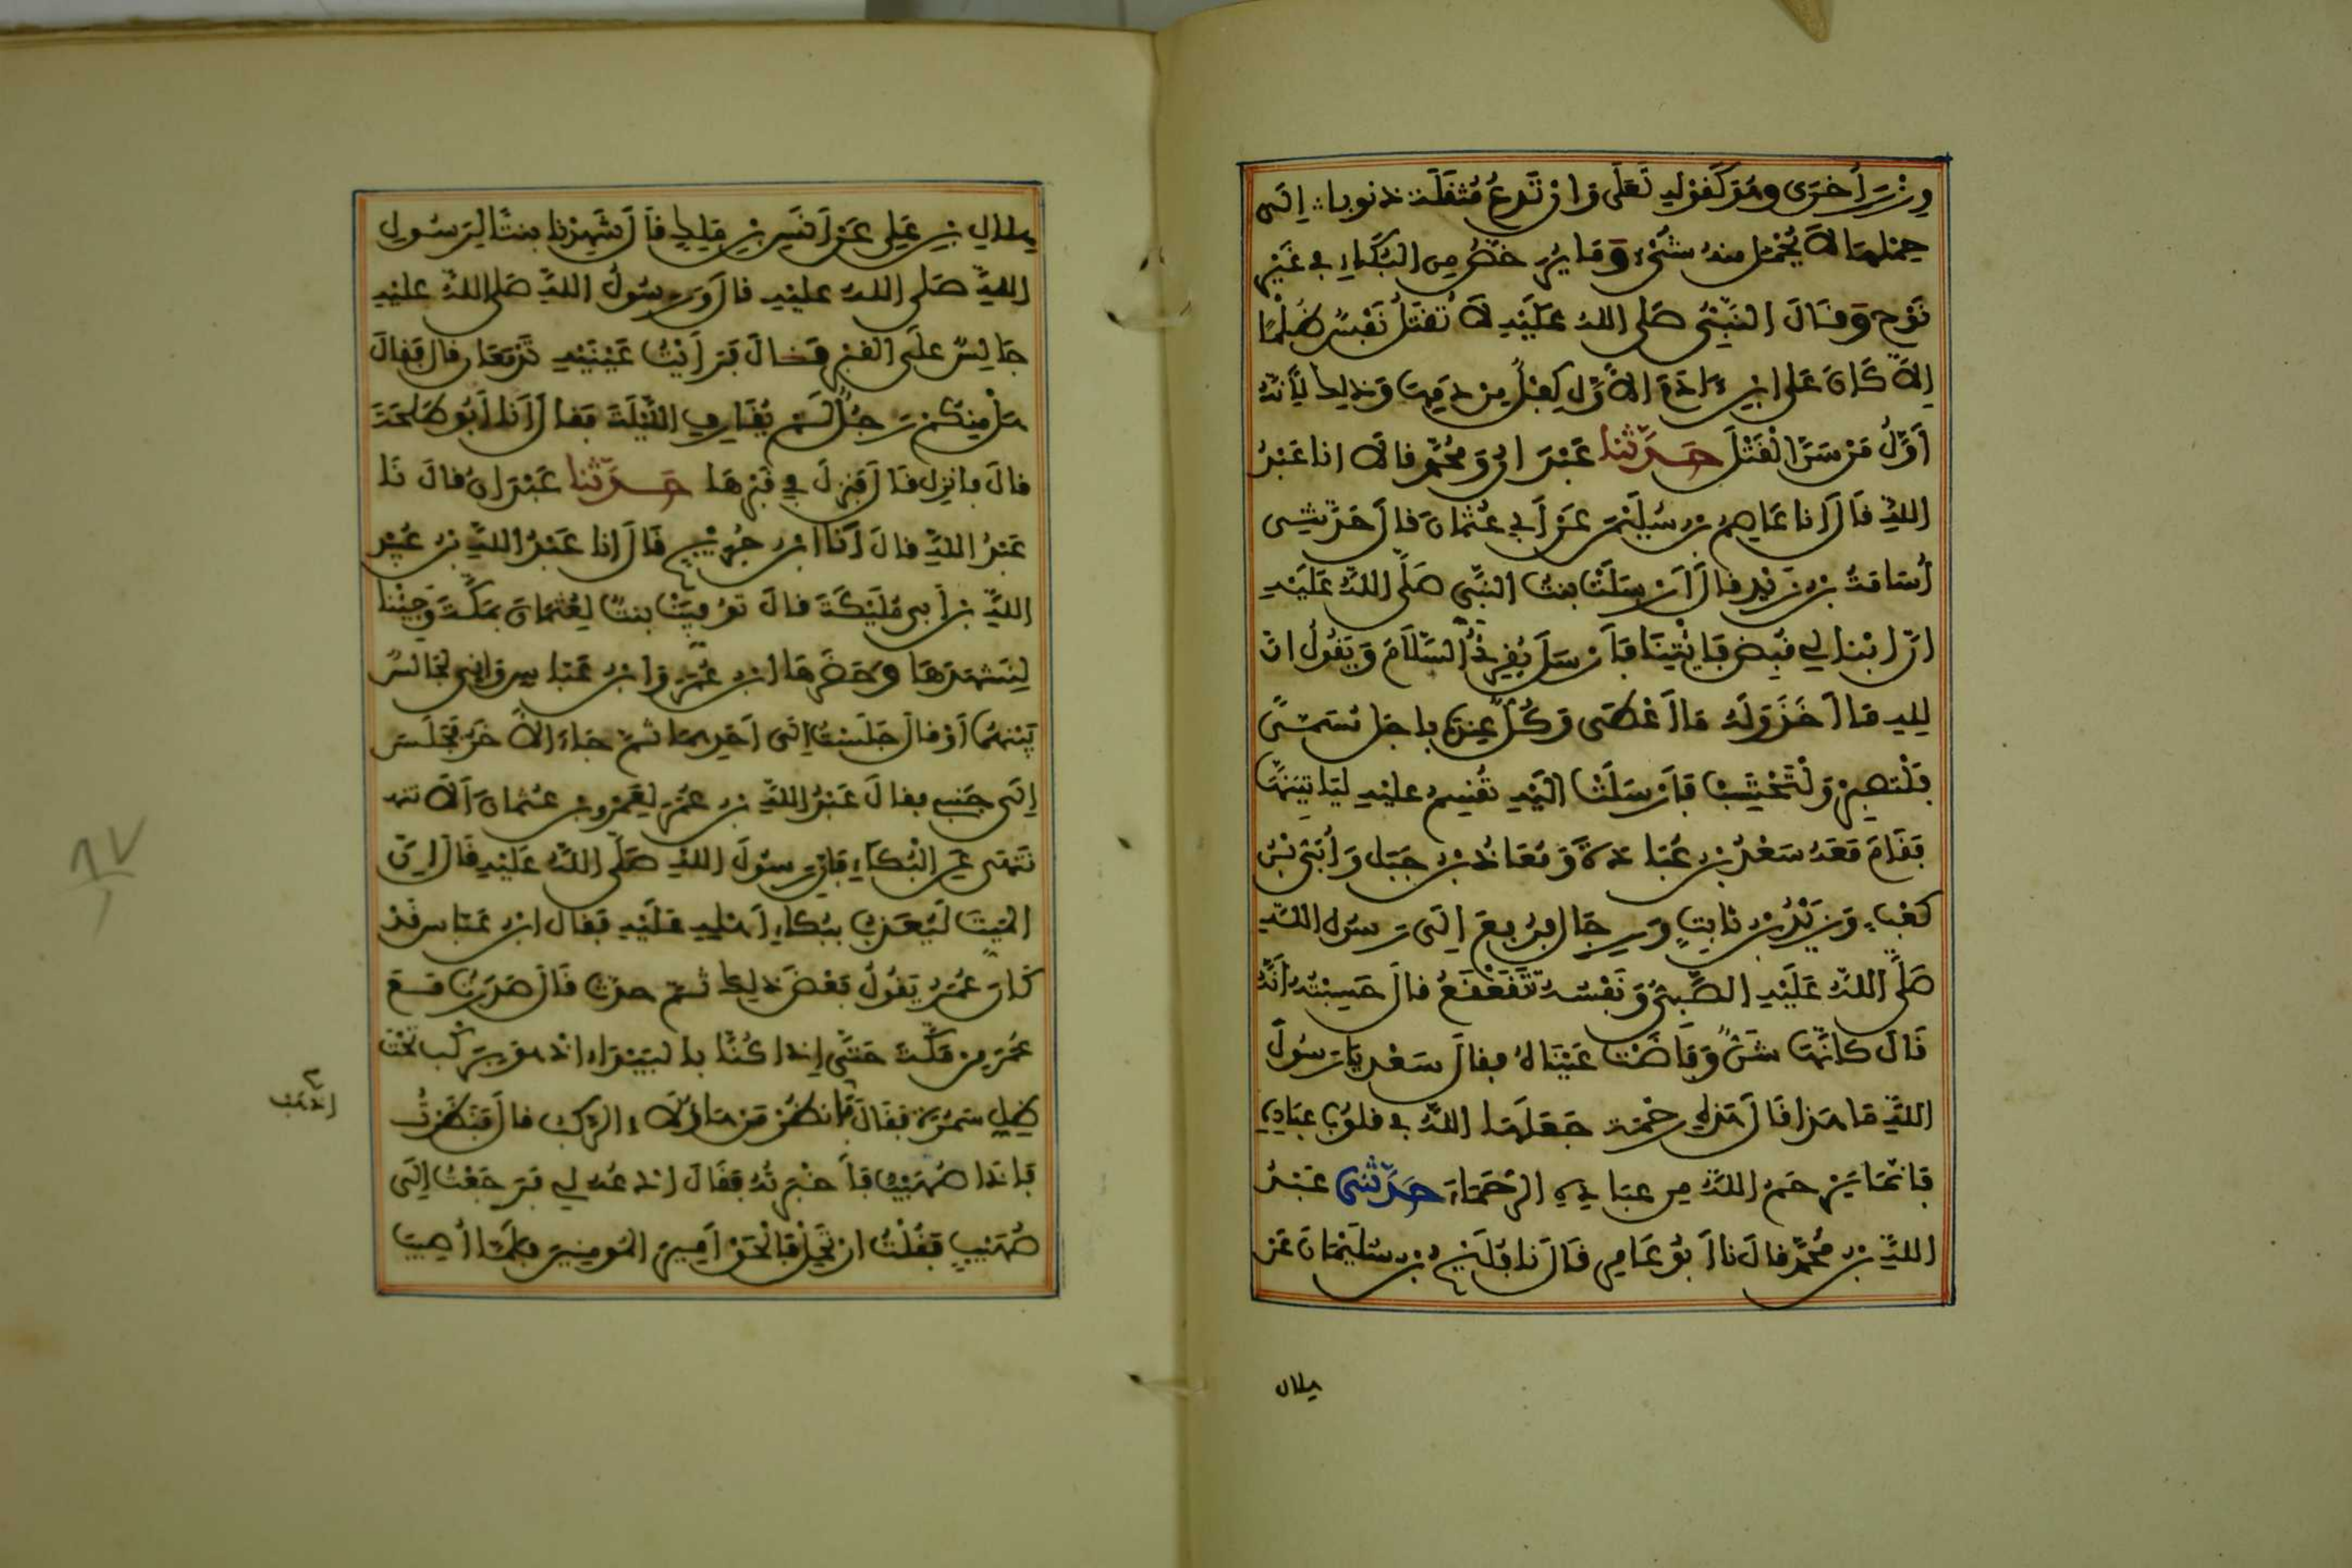 وِزْرَ أُخْرَى وهُوَ كَقَوْلِهِ تَعَلَى وَان تَدْعُ مُثْقَلَة ذنوبا إِلَى
حِمْلِهَا لاَ يُحْمَل مِنهُ شَىْءٌ وَمَا يُرَخَّصُ مِن البُكَاءِ في غَيْرِ
نَوْح وَقَالَ النَّبِىُّ صَلى اللهُ عَلَيْهِ لاَ تُقْتَلُ نَفْسٌ ظُلْمًا
إِلاَّ كَانَ عَلى ابْنِ ءَادَمَ الاَوَّلِ كِفْلٌ مِن دَمِهَا وَذلِكَ لِأَنَّهُ
أَوَّلُ مَن سَنَّ الْقَتْلَ حَدَّثَنَا عَبْدَانُ وَمُحَمَّد قالاَ انا عَبْدُ
اللهِ قَالَ انا عَاصِمُ بن سُلَيْمَن عَن أَبي عُثْمَانَ قالَ حَدَّثَنِى
أُسَامَةُ بْن زَيْدٍ قالَ أَرْسَلَتْ بنتُ النَّبِّي صَلَّى اللهُ عَلَيْهِ
انّ ابْنا لِي قُبِضَ فَايْتِنَا فَأَرْسَلَ يُقْرِئُ السَّلاَمَ وَيَقُولُ انّ
لِلهِ مَا أَخَذَ وَلَهُ مَا أَعْطَى وَكُلٌّ عِندَهُ بِاجَل مُسَمًّى
فَلْتَصْبِرْ وَلْتَحْتَسِبْ فَأَرْسَلَتْ الَيْهِ تُقْسِمُ عليْهِ لَيَاتِيَنَّهَا
فَقَامَ مَعَهُ سَعْدُ بْن عُبَادَةَ وَمُعَاذُ بْن جَبَل وَأُبَىُّ بْنُ
كَعْبٍ وَزَيْدُ بْن ثَابِتٍ وَرِجَال فرُفِعَ إِلَى رَسُولِ اللهِ
صَلَّى اللهُ عَلَيْهِ الصَّبِىُّ وَنَفْسُهُ تَتَقَعْقَعُ قالَ حَسِبْتُهُ أَنَّهُ
قَالَ كَانَّهَا شَنٌّ وَفَاضَتْ عَيْنَاهُ فقالَ سَعْد يَا رَسُولَ
اللهِ مَا هَذا قَالَ هَذِهِ رَحْمَة جَعَلَهَا اللهُ في قلُوبِ عِبَادِهِ
فَانَّمَا يَرْحَمُ اللهُ مِن عِبَادِهِ الرُّحَمَاءَ حَدَّثَنِى عَبْدُ
اللهِ بْن مُحَمَّد قالَ نا أَبُو عَامِر قَالَ نا فُلَيْحُ بْن سُلَيْمَانَ عَن
هلال
هِلاَلِ بْنِ عَلِي عَن أَنَسِ بْنِ مَلِكٍ قَالَ شَهِدْنَا بنتًا لِرَسُولِ
اللهِ صَلى اللهُ عليْهِ قالَ وَرَسُولُ اللهِ صَلى اللهُ عليْهِ
جَالِسٌ عَلَى القَبْرِ قَالَ فَرَأَيْتُ عَيْنَيْهِ تَدْمَعَانِ قالَ فَقَالَ
هَلْ مِنكُمْ رَجُلٌ لَمْ يُقَارِفِ اللَّيْلَةَ فَقَالَ أَبُو طَلْحَةَ أَنَا
قالَ فانزِل قَالَ فَنزَلَ في قَبْرِهَا حَدَّثَنَا عَبْدَانُ قالَ نَا
عَبْدُ اللهِ قالَ أَنَا ابْن جُرَيْجٍ قَالَ انا عَبْدُ اللهِ بْن عُبَيْدِ
اللهِ بْن أَبى مُلَيْكَةَ قالَ تُوُفِّيَتْ بنتٌ لِعُثْمَانَ بِمَكَّةَ وَجِيْنَا
لِنَشْهَدَهَا وَحَضَرَهَا ابْن عُمَرَ وَابْن عَبَّاسٍ وَإِنِّى لجَالِسٌ
بَيْنَهُمَا أَوْ قالَ جَلَسْتُ إِلَى أَحَدِهِمَا ثمَّ جَاءَ الآخَرُ فَجَلَسَ
إِلَى جَنبِى فقالَ عَبْدُ اللهِ بْن عُمَرَ لِعَمْرو بْن عُثْمَانَ أَلاَ تنه
تَنْهَى عَنِ الْبُكَاءِ فَإِنَّ رسُولَ اللهِ صَلَّى اللهُ عَلَيْهِ قَالَ إِنَّ
المَيِّتَ لَيُعَذَّبُ بِبُكَاءِ أَهْلِهِ عَلَيْهِ فَقَال ابْن عَبَّاس قَدْ
كَانَ عُمَرُ يَقُولُ بَعْضَ ذَلِكَ ثمَّ حَدَّثَ قَالَ صَدَرْتُ مَعَ
عُمَرَ مِن مَكَّةَ حَتَّى إِذَا كُنَّا بِالبَيْدَاءِ اذ هوَ بِرَكْب تَحْتَ
ظِلِّ سَمُرَةٍ فَقَالَ اذهَب فَانظُرْ مَن هَاؤُلاَءِ الرَّكْب قالَ فَنَظَرْتُ
فَإِذَا صُهَيْبٌ فَأَخْبَرْتُهُ فَقَالَ ادْعُهُ لِي فَرَجَعْتُ إِلَى
صُهَيْبٍ فَقُلْتُ ارْتَحِلْ فَالْحَقْ أَمِيرَ المُومِنِينَ فَلَمَّا أُصِيبَ
٨٧